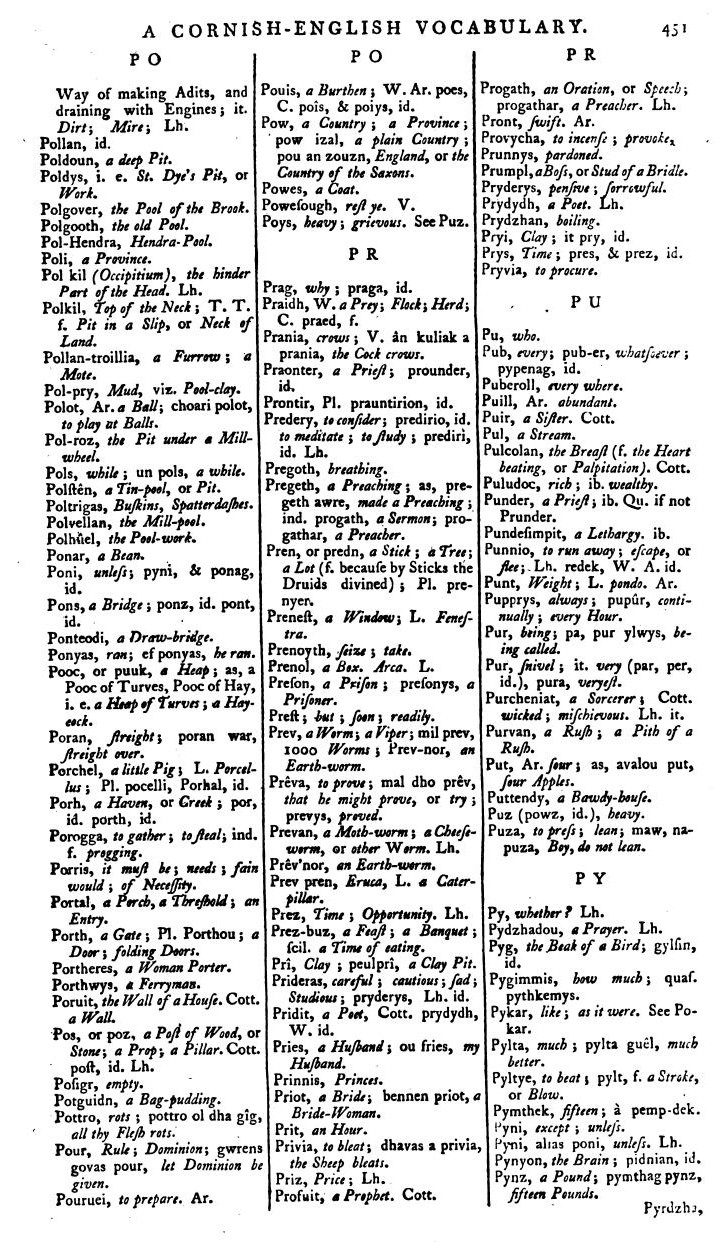 A CORNISH-ENGLISH VOCABULARY. 451
PO
Way of making Adits, and
draining with Engines; it.
Dirt; Mire; Lh.
Pollan, id.
Poldoun, a deep Pit.
Poldys, i. e. St. Dye's Pit, or
Work.
Polgover, the Pool of the Brook.
Polgooth, the old Pool.
Pol-Hendra, Hendra-Pool.
Poli, a Province.
Pol kil (Occipitium), the hinder
Part of the Head. Lh.
Polkil, Top of the Neck; T. T.
f. Pit in a Slip, or Neck of
Land.
Pollan-troillia, a Furrow; a
Mote.
Pol-pry, Mud, viz. Pool-clay.
Polot, Ar. a Ball; choari polot,
to play at Balls.
Pol-roz, the Pit under a Mill-
wheel.
Pols, while; un pols, a while.
Polſtên, a Tin-pool, or Pit.
Poltrigas, Buſkins, Spatterdaſhes.
Polvellan, the Mill-pool.
Polhûel, the Pool-work.
Ponar, a Bean.
Poni, unleſs; pyni, & ponag,
id.
Pons, a Bridge; ponz, id. pont,
id.
Ponteodi, a Draw-bridge.
Ponyas, ran; ef ponyas, he ran.
Pooc, or puuk, a Heap; as, a
Pooc of Turves, Pooc of Hay,
i. e. a Heap of Turves; a Hay-
cock.
Poran, ſtreight; poran war,
ſtreight over.
Porchel, a little Pig; L. Porcel-
lus; Pl. pocelli, Porhal, id.
Porh, a Haven, or Creek; por,
id. porth, id.
Porogga, to gather; to ſteal; ind.
f. progging.
Porris, it muſt be; needs; fain
would; of Neceſſity.
Portal, a Porch, a Threſhold; an
Entry.
Porth, a Gate; Pl. Porthou; a
Door; folding Doors.
Portheres, a Woman Porter.
Porthwys, a Ferryman.
Poruit, the Wall of a Houſe. Cott.
a Wall.
Pos, or poz, a Poſt of Wood, or
Stone; a Prop; a Pillar. Cott.
poſt, id. Lh.
Poſigr, empty.
Potguidn, a Bag-pudding.
Pottro, rots; pottro ol dha gîg,
all thy Fleſh rots.
Pour, Rule; Dominion; gwrens
govas pour, let Dominion be
given.
Pouruei, to prepare. Ar.
PO
Pouis, a Burthen; W. Ar. poes,
C. pois, & poiys, id.
Pow, a Country; a Province;
pow izal, a plain Country;
pou an zouzn, England, or the
Country of the Saxons.
Powes, a Coat.
Poweſough, reſt ye. V.
Poys, heavy; grievous. See Puz.
PR
Prag, why; praga, id.
Praidh, W. a Prey; Flock; Herd;
C. praed, f.
Prania, crows; V. ân kuliak a
prania, the Cock crows.
Praonter, a Prieſt; prounder,
id.
Prontir, Pl. prauntirion, id.
Predery, to conſider; predirio, id.
to meditate; to ſtudy; prediri,
id. Lh.
Pregoth, breathing.
Pregeth, a Preaching; as, pre-
geth awre, made a Preaching;
ind. progath, a Sermon; pro-
gathar, a Preacher.
Pren, or predn, a Stick; a Tree;
a Lot (f. becauſe by Sticks the
Druids divined); Pl. pre-
nyer.
Preneſt, a Window; L. Feneſ-
tra.
Prenoyth, ſeize; take.
Prenol, a Box. Arca. L.
Preſon, a Priſon; preſonys, a
Priſoner.
Preſt; but; ſoon; readily.
Prev, a Worm; a Viper; mil prev,
1000 Worms; Prev-nor, an
Earth-worm.
Prêva, to prove; mal dho prêv,
that he might prove, or try;
prevys, proved.
Prevan, a Moth-worm; a Cheeſe-
worm, or other Worm. Lh.
Prêv'nor, an Earth-worm.
Prev pren, Eruca, L. a Cater-
pillar.
Prez, Time; Opportunity. Lh.
Prez-buz, a Feaſt; a Banquet;
ſcil. a Time of eating.
Prî, Clay; peulprî, a Clay Pit.
Prideras, careful; cautious; ſad;
Studious; pryderys, Lh. id.
Pridit, a Poet, Cott. prydydh,
W. id.
Pries, a Huſband; ou fries, my
Huſband.
Prinnis, Princes.
Priot, a Bride; bennen priot, a
Bride-Woman.
Prit, an Hour.
Privia, to bleat; dhavas a privia,
the Sheep bleats.
Priz, Price; Lh.
Profuit, a Prophet. Cott.
PR
Progath, an Oration, or Speech;
progathar, a Preacher. Lh.
Pront, ſwift. Ar.
Provycha, to incenſe; provoke.
Prunnys, pardoned.
Prumpl, a Boſs, or Stud of a Bridle.
Pryderys, penſive; ſorrowful.
Prydydh, a Poet. Lh.
Prydzhan, boiling.
Pryi, Clay; it pry, id.
Prys, Time; pres, & prez, id.
Pryvia, to procure.
PU
Pu, who.
Pub, every; pub-er, whatſoever;
pypenag, id.
Puberoll, every where.
Puill, Ar. abundant.
Puir, a Siſter. Cott.
Pul, a Stream.
Pulcolan, the Breaſt (f. the Heart
beating, or Palpitation). Cott.
Puludoc, rich; ib. wealthy.
Punder, a Prieſt; ib. Qu. if not
Prunder.
Pundeſimpit, a Lethargy. ib.
Punnio, to run away; eſcape, or
flee; Lh. redek, W. A. id.
Punt, Weight; L. pondo. Ar.
Pupprys, always; pupûr, conti-
nually; every Hour.
Pur, being; pa, pur ylwys, be-
ing called.
Pur, ſnivel; it. very (par, per,
id.), pura, veryeſt.
Purcheniat, a Sorcerer; Cott.
wicked; miſchievous. Lh. it.
Purvan, a Ruſh; a Pith of a
Ruſh.
Put, Ar. ſour; as, avalou put,
ſour Apples.
Puttendy, a Bawdy-houſe.
Puz (powz, id.), heavy.
Puza, to preſs; lean; maw, na-
puza, Boy, do not lean.
PY
Py, whether? Lh.
Pydzhadou, a Prayer. Lh.
Pyg, the Beak of a Bird; gylfin,
id.
Pygimmis, how much; quaſ.
pythkemys.
Pykar, like; as it were. See Po-
kar.
Pylta, much; pylta guêl, much
better.
Pyltye, to beat; pylt, f. a Stroke,
or Blow.
Pymthek, fifteen; à pemp-dek.
Pyni, except; unleſs.
Pyni, alias poni, unleſs. Lh.
Pynyon, the Brain; pidnian, id.
Pynz, a Pound; pymthag pynz,
fifteen Pounds.
Pyrdzha,